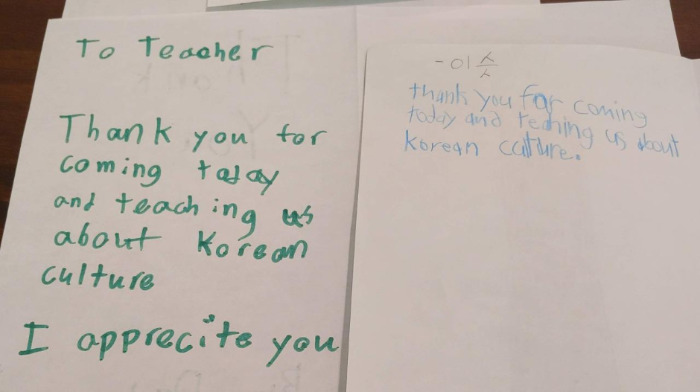 To Teacher
Thank you for
coming today
and teaching us
about Korean
culture
I apprecite you
thank you for coming
today and teaching us about
korean culture.